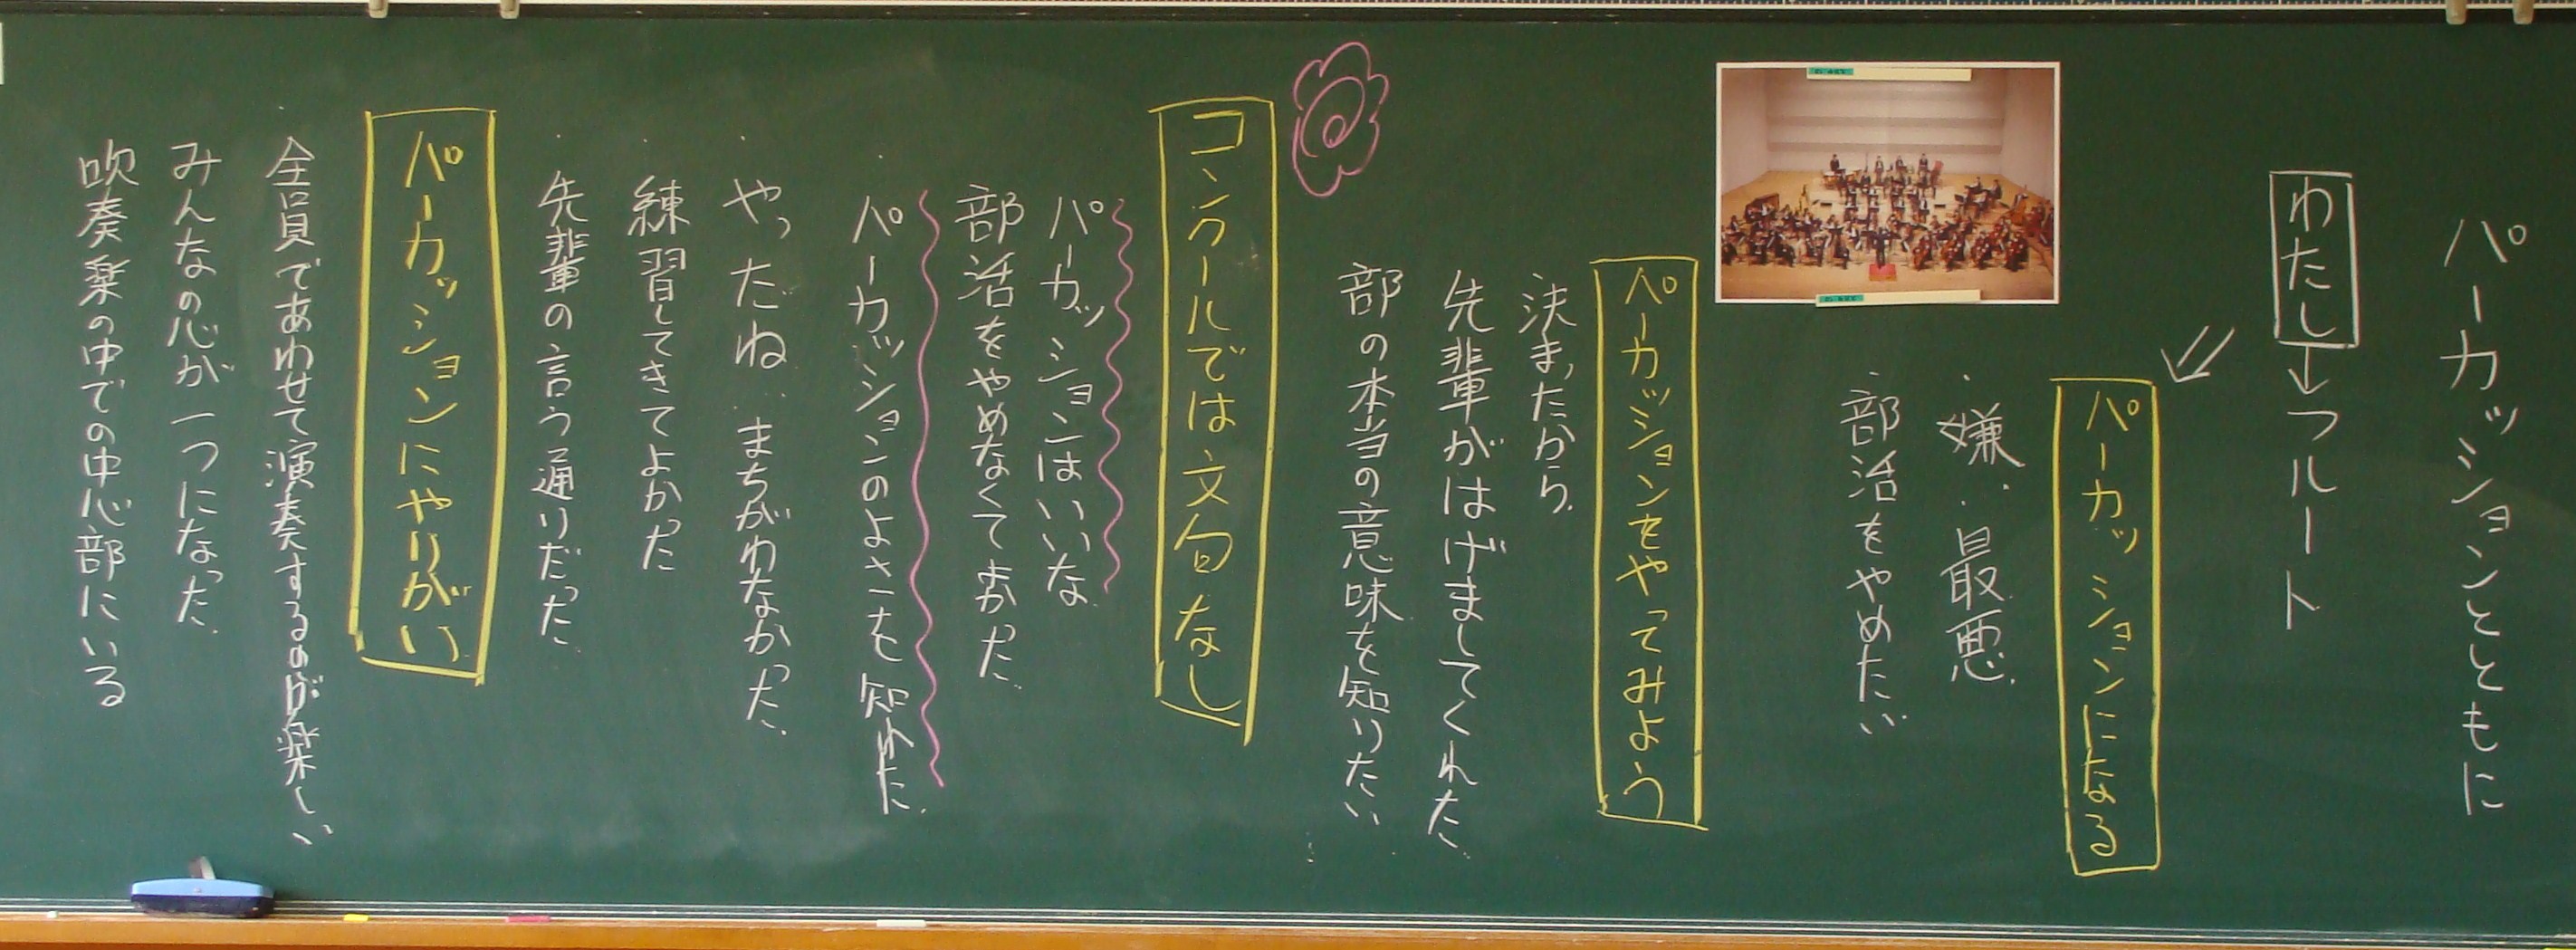 パーカッションとともに
わたし→フルート
パーカッションになる
嫌. 最悪.
部活をやめたい
パーカッションをやってみよう
決まったから.
先輩がはげましてくれた.
部の本当の意味を知りたい
コンクールでは文句なし
パーカッションはいいな.
部活をやめなくてよかった.
パーカッションのよさを知れた.
やったね. まちがわなかった.
練習してきてよかった
先輩の言う通りだった.
パーカッションにやりがい
全員であわせて演奏するのが楽しい
みんなの心が一つになった.
吹奏楽の中での中心部にいる